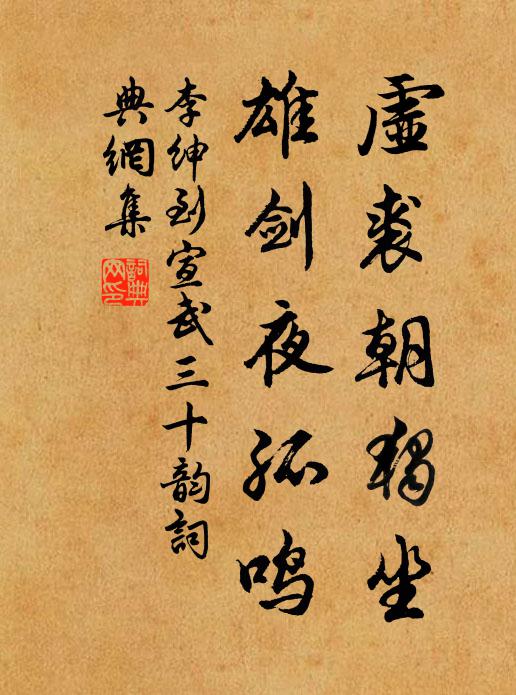 虚裘朝獨坐
雄剑夜孤鳴
李紳到宣武三十韵詞
典網集
詞典
网印